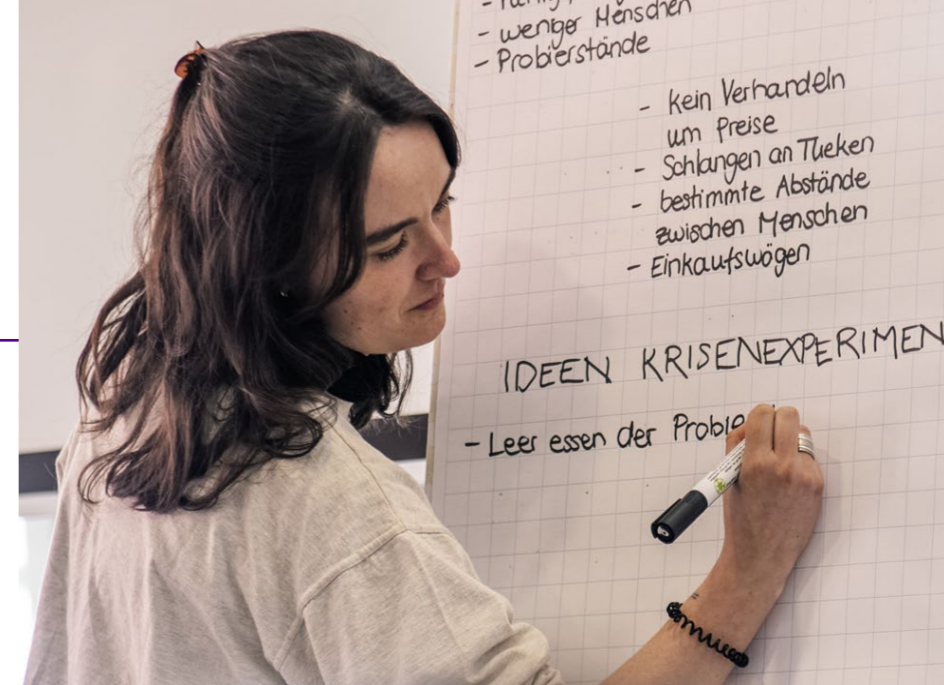 - weniger Menschen
- Probierstände
- kein Verhandeln
um Preise
- Schlangen an Tueken
- bestimmte Abstände
zwischen Menschen
- Einkaufswögen
IDEEN KRISENEXPERIMEN
- Leer essen der Probie